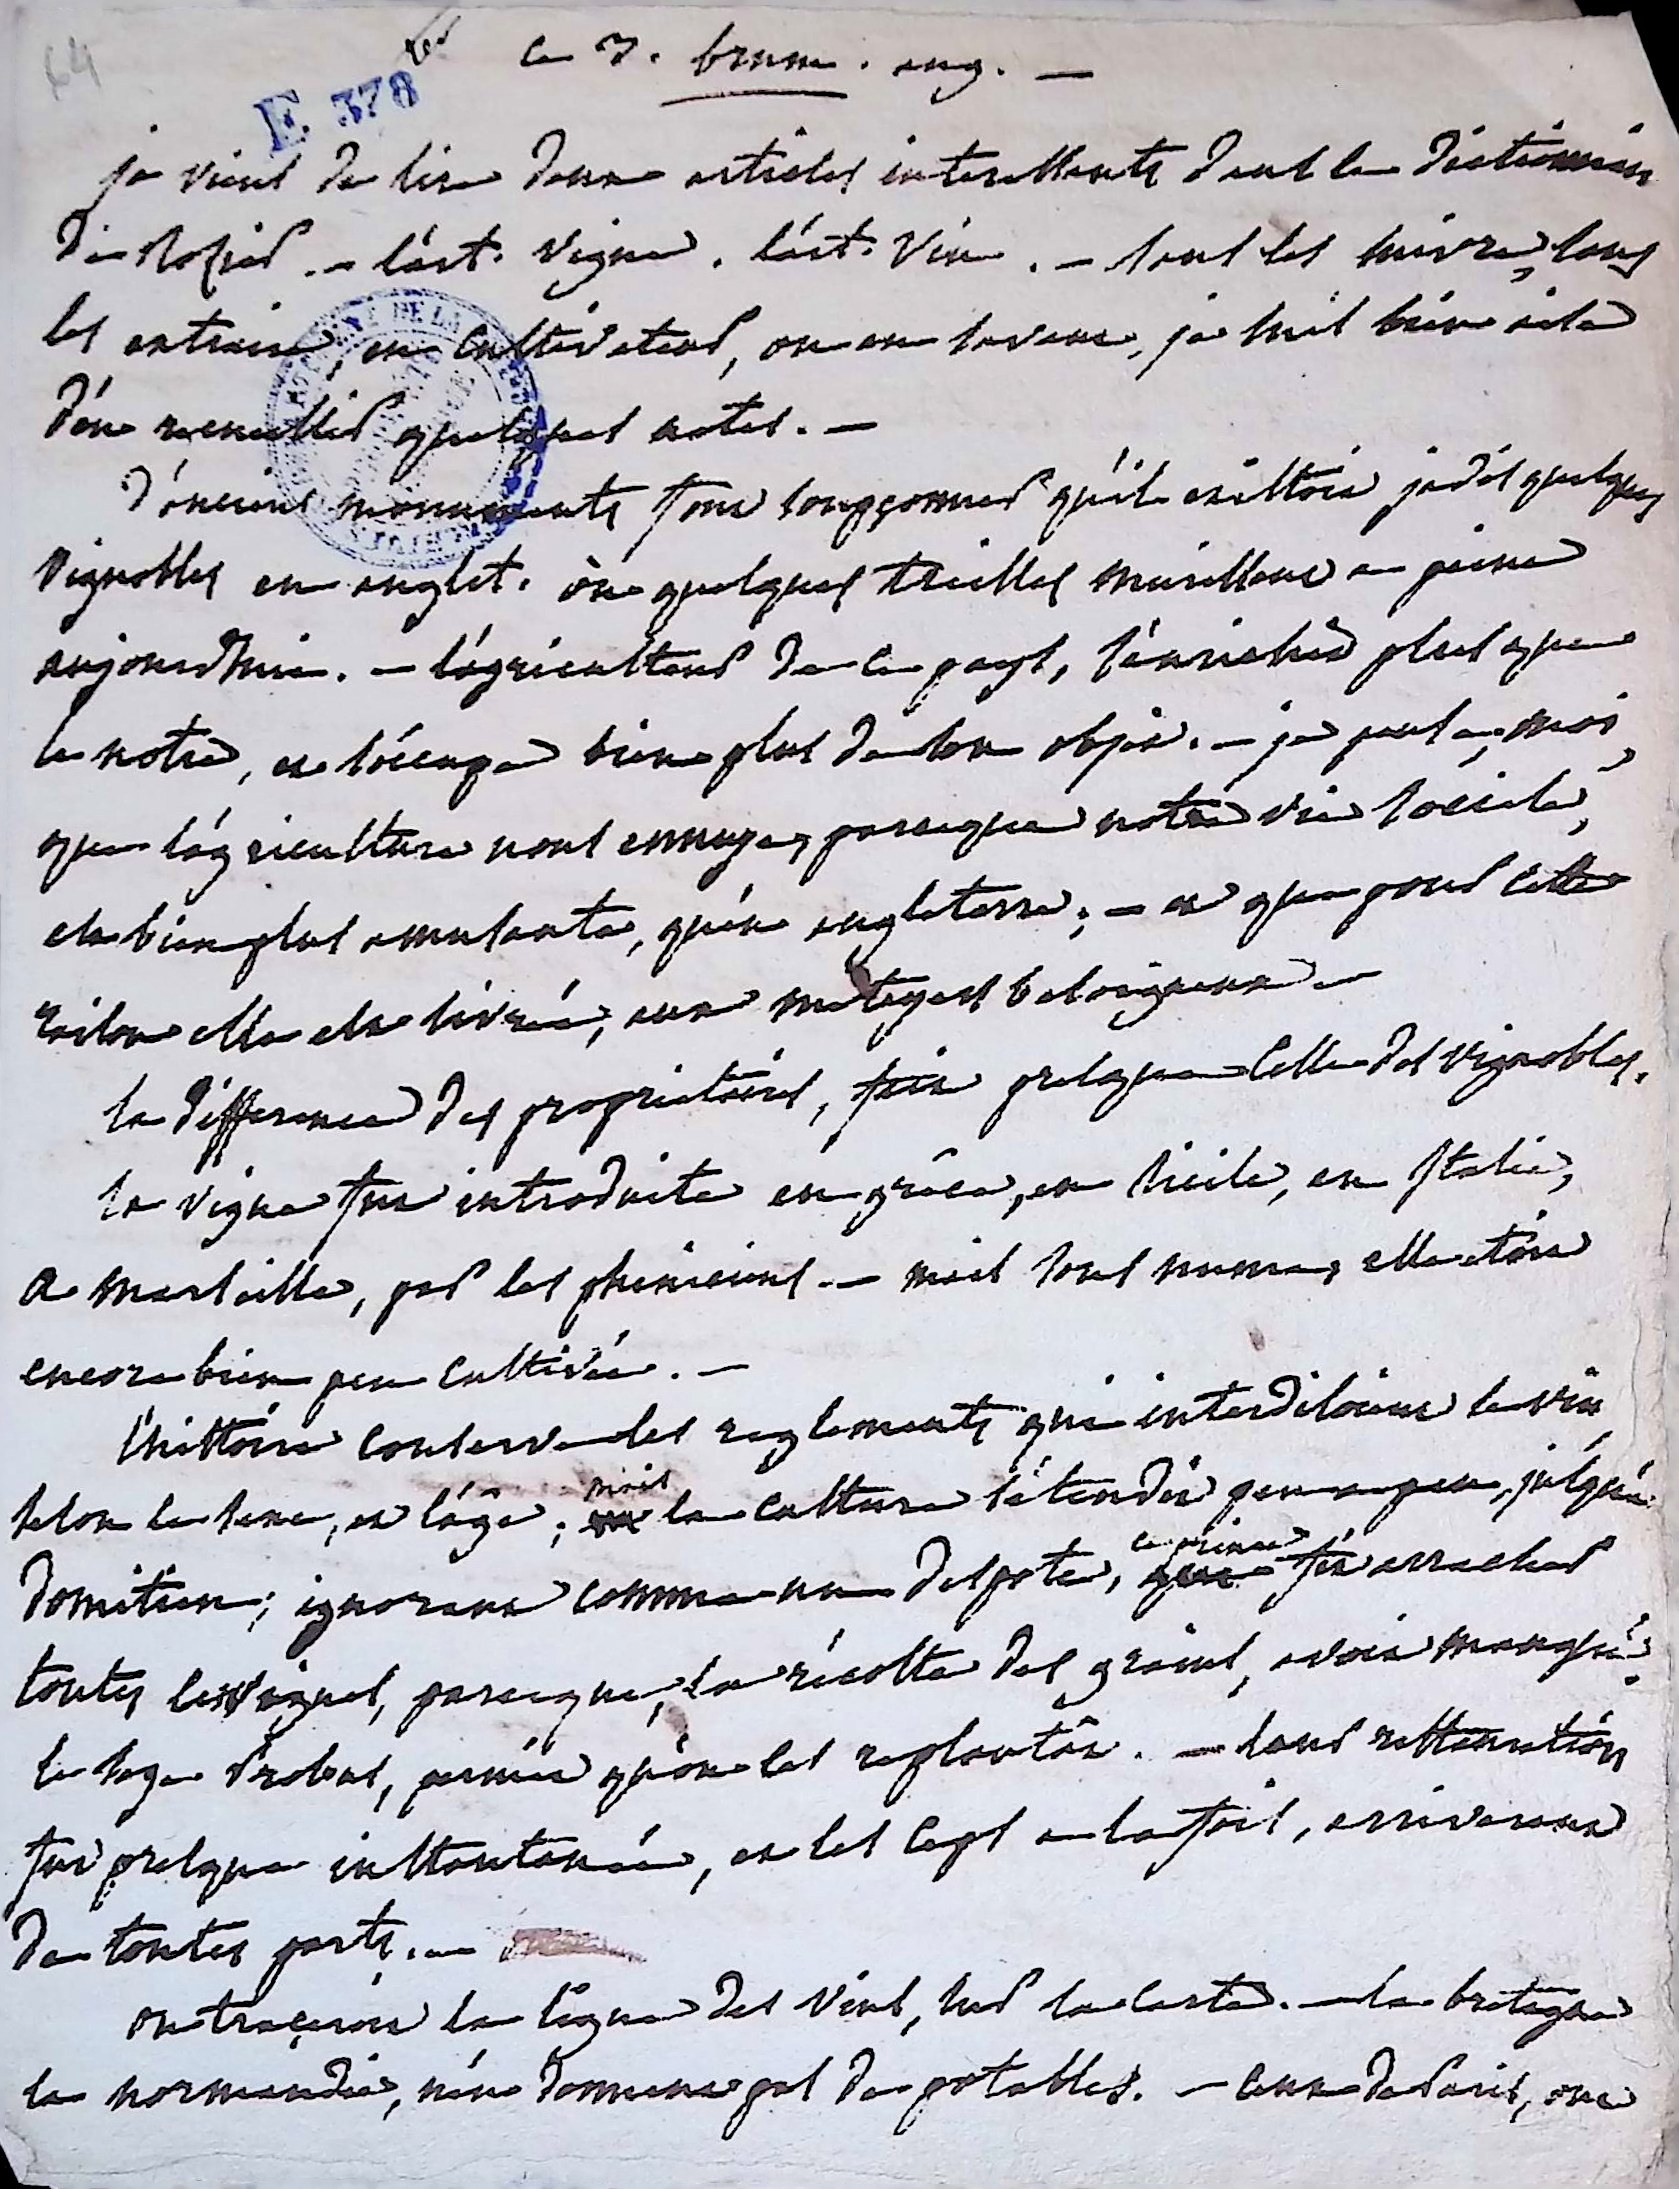 64
E 378
ce 7. brum. aug. —
je viens de lire deux articles interessants dans le dictionnaire
de Rozier. — l'art. vigne. l'art. vin. — sans les suivre, sans
les extraire, en cultivateur, ou en savant, je suis bien aise
d'en recueillir quelques notes. —
d'anciens monuments font soupçonner qu'il existoit jadis quelques
vignobles en anglet. où quelques treilles murissent a peine
aujourdhui. — l'agriculteur de ce pays, s'enrichit plus que
le notre, et s'occupe bien plus de son objet. — je pense, moi,
que l'agriculture nous ennuye, parceque notre vie sociale,
est bien plus amusante, qu'en angleterre; — et que pour cette
raison elle est livrée, aux metayers besoigneux —
la difference des proprietaires, fait presque celle des vignobles.
la vigne fut introduite en grêce, en Sicile, en Italie,
a marseille, par les pheniciens. — mais sous numa, elle etoit
encore bien peu cultivée. —
l'histoire conserve des reglements qui interdisoient le vin
selon le sexe, et l'âge; mais la culture s'étendit peu a peu, jusqu'à
domitien; ignorant comme un despote, ce prince fit arracher
toutes les vignes, parceque, la récolte des grains, avoit manqué.
le sage Probus, permit qu'on les replantât. — leur restauration
fut presque instantanée, et les ceps a la fois, arriverent
de toutes parts. —
on traçeroit la ligne des vins, sur la carte. — la bretagne
la normandie, n'en donnent pas de potables. — ceux de Paris, ont